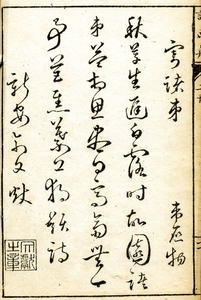 寄諸弟
韋應物
秋草生庭白露時故園諸
弟益相思盡日高齋無一
事芭蕉葉上獨題詩
新安俞文獻